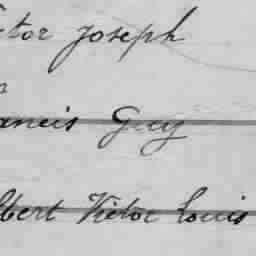 ctor Joseph
n
ancis Guy
lbert Victor Louis